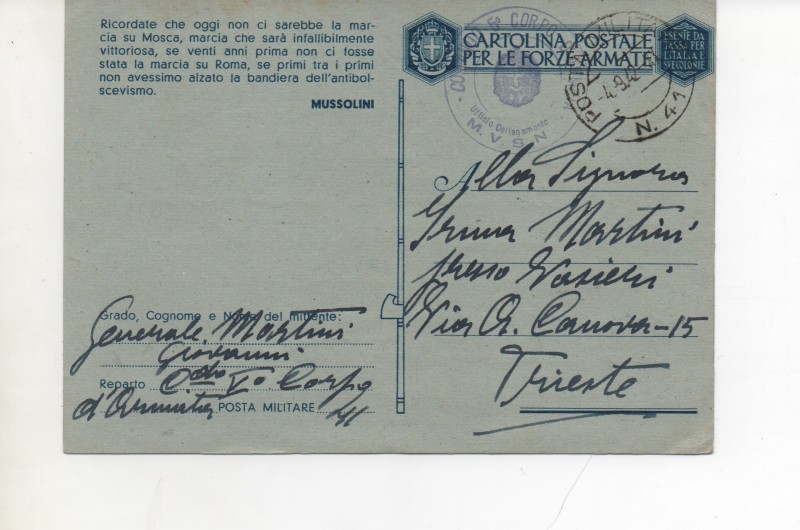 Ricordate che oggi non ci sarebbe la mar-
cia su Mosca, marcia che sarà infallibilmente
vittoriosa, se venti anni prima non ci fosse
stata la marcia su Roma, se primi tra i primi
non avessimo alzato la bandiera dell'antibol-
scevismo.
MUSSOLINI
CARTOLINA POSTALE
PER LE FORZE ARMATE
ESENTE DA
TASSA PER
L'ITALIA E
SUE COLONIE
5° CORPO
Ufficio Collegamento
M. V. S. N.
POSTA MILITARE
N. 41
Alla Signora
Irma Martini
presso Vasieri
Via A. Canova-15
Trieste
Grado, Cognome e Nome del mittente:
Generale Martini
Giovanni
Reparto C.do V° Corpo
d'Armata POSTA MILITARE 41